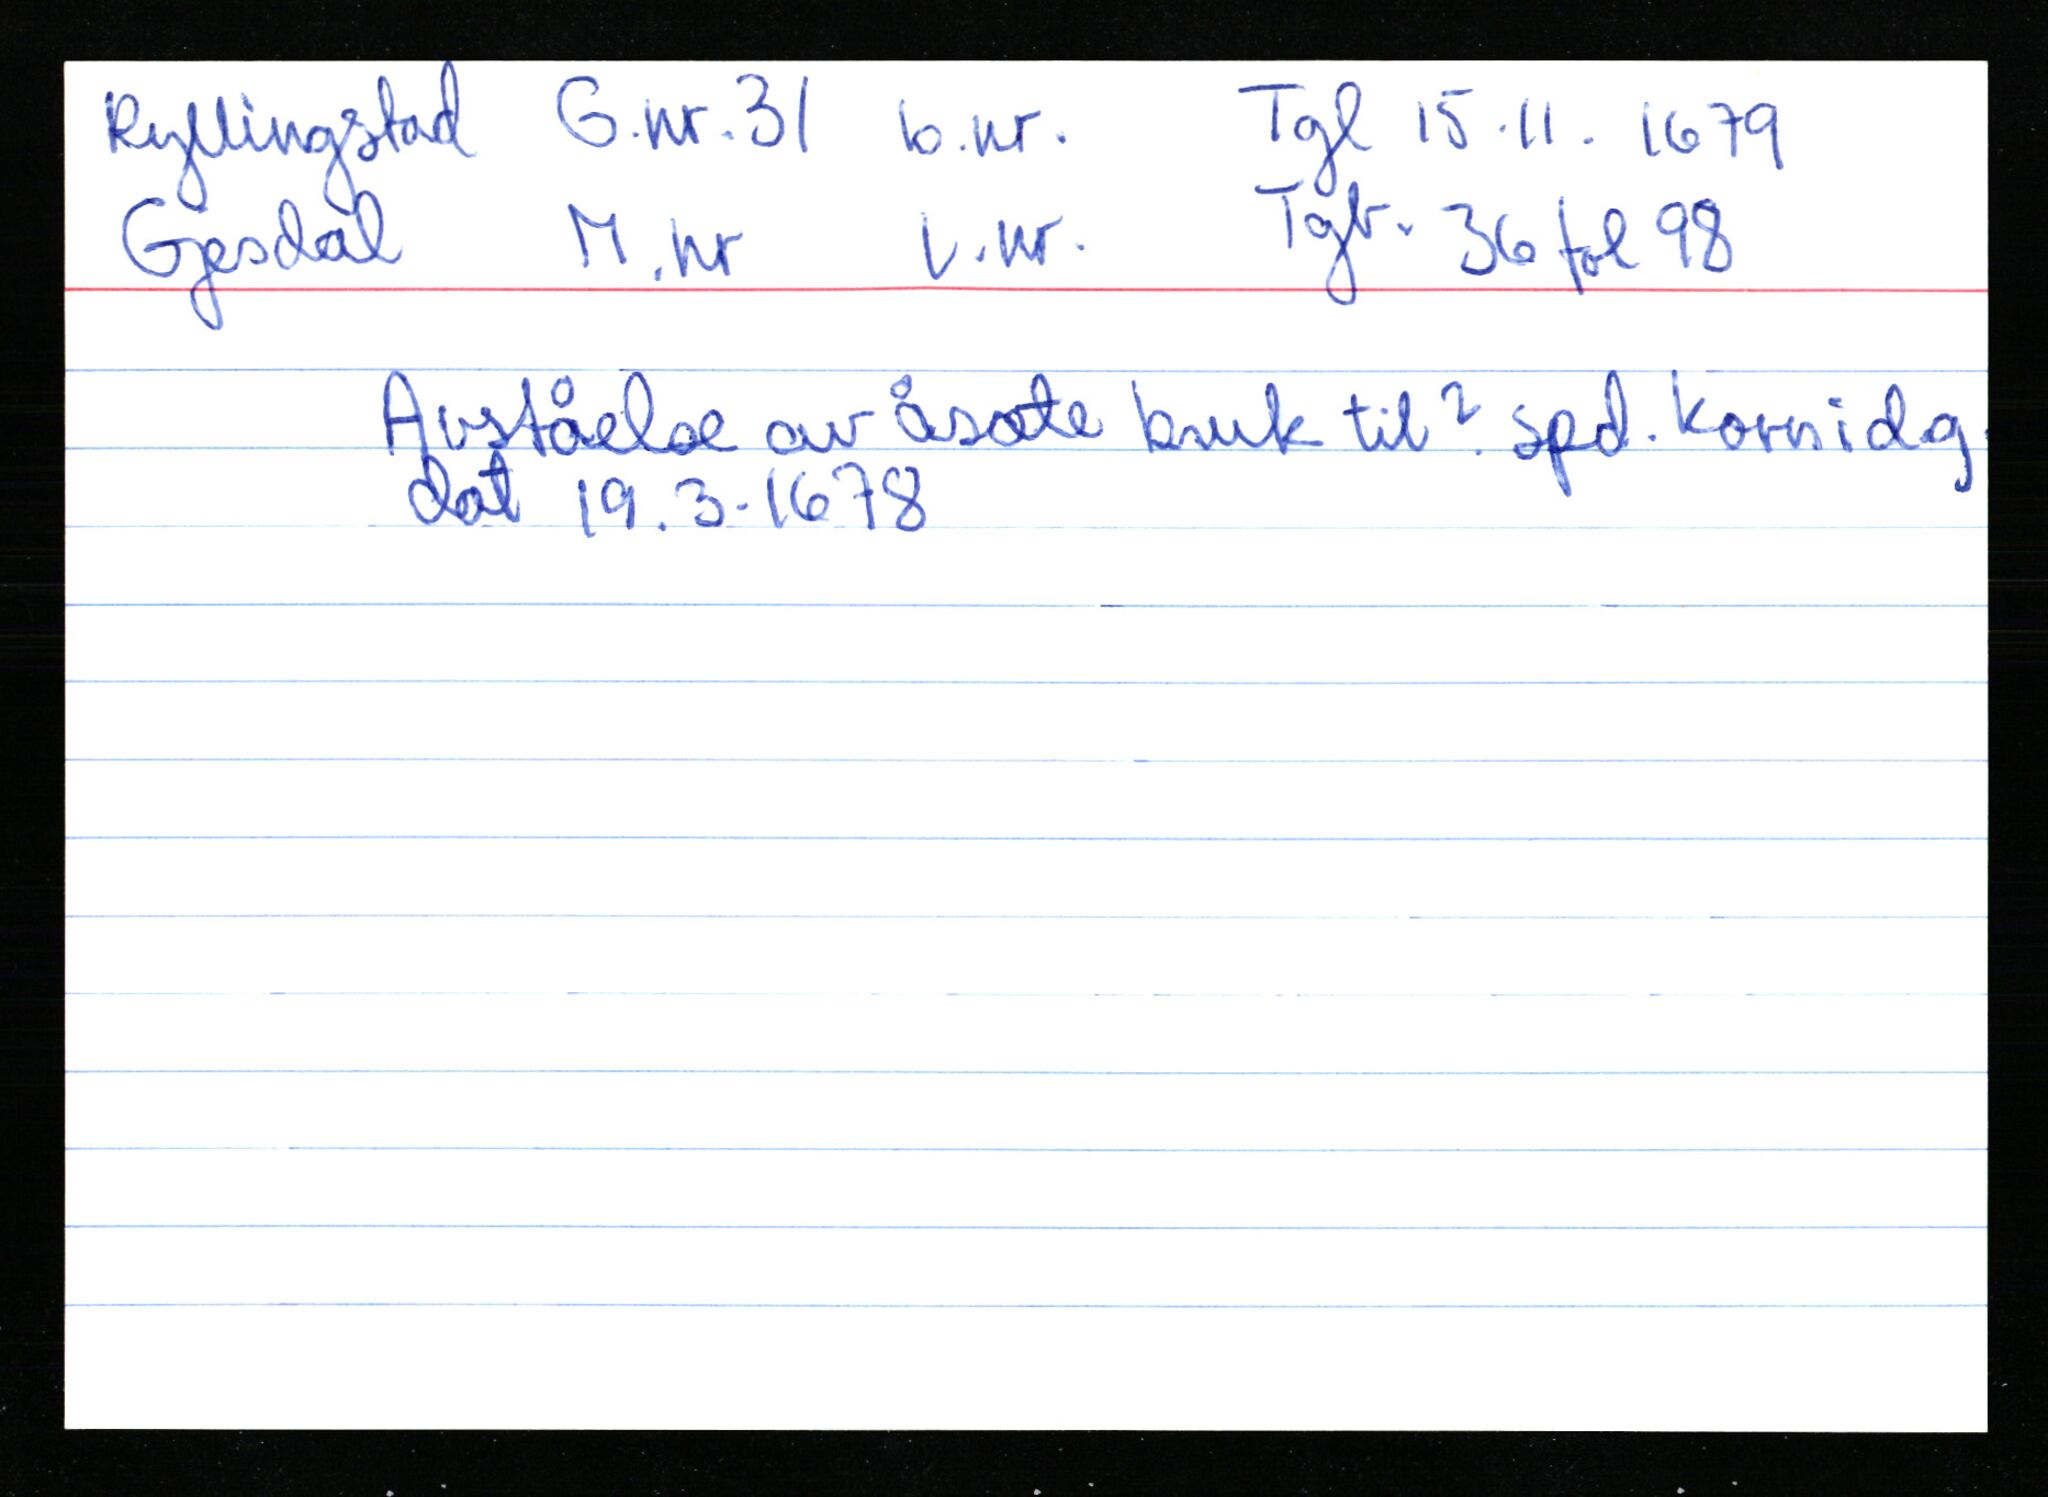 Ryllingstad G.nr. 31 b.nr. Tgl 15.11. 1679
Gjesdal M.nr L.nr. Tgb. 36 fol 98
Avståelse av åsæte bruk til ? spd. korn idg.
dat 19.3.1678